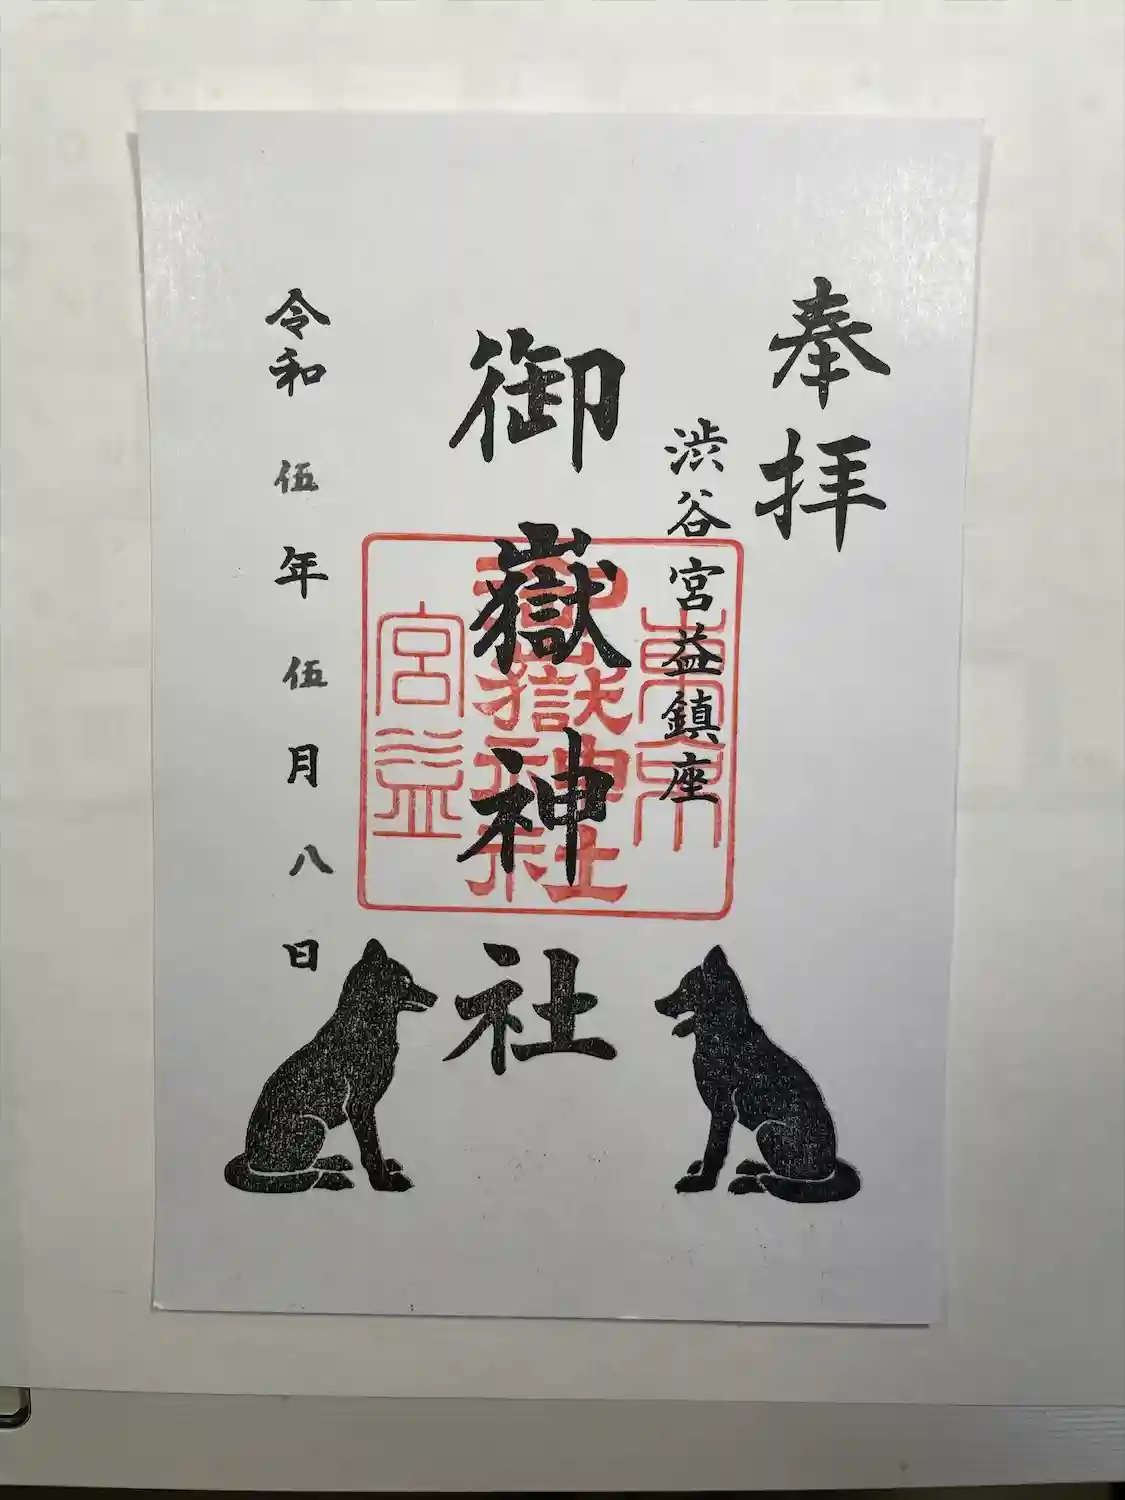 奉拝
渋谷宮益鎮座
御嶽神社
東京
御嶽神社
宮益
令和伍年伍月八日